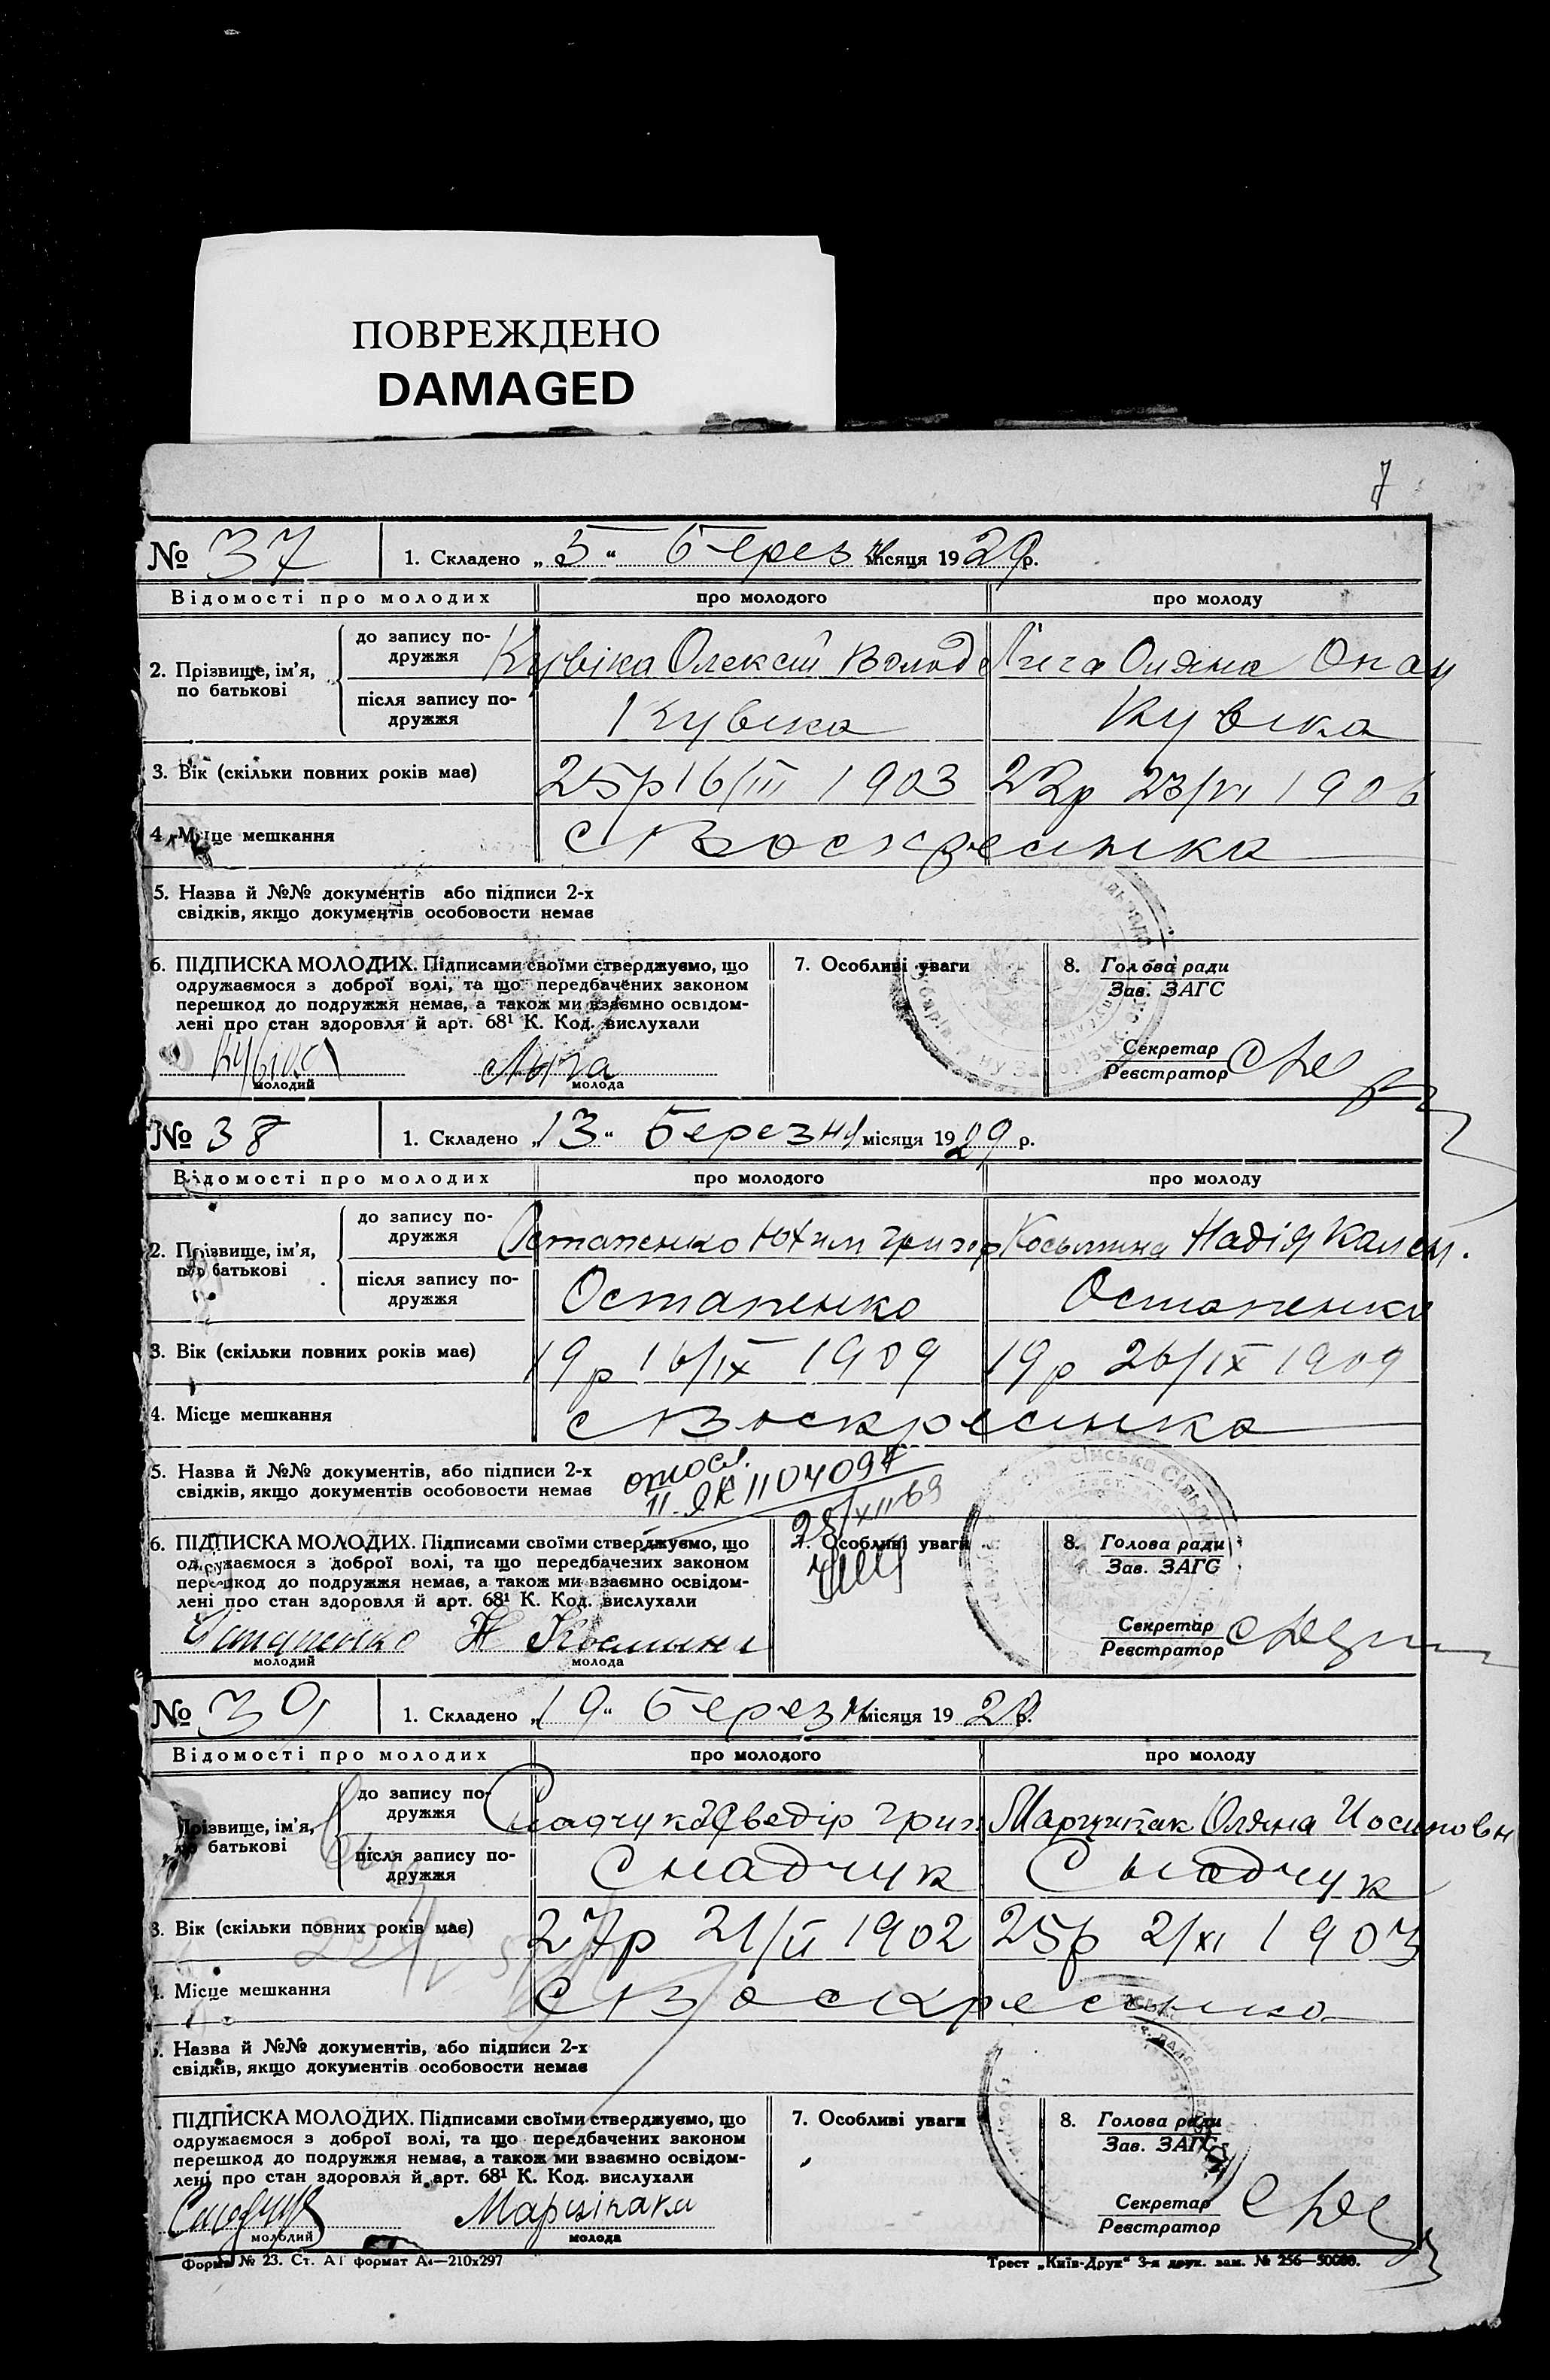 ПОВРЕЖДЕНО
DAMAGED
7
№ 37 1. Складено „ 5 “ Березня місяця 1929 р.
Відомості про молодих про молодого про молоду
2. Прізвище, ім'я, по батькові
до запису подружжя Кувіка Олексій Волод Лига Оляна Опан
після запису подружжя Кувіка Кувіка
3. Вік (скільки повних років має) 25р 16/III 1903 22р 23/VI 1906
4. Місце мешкання с Воскресинка
5. Назва й №№ документів або підписи 2-х
свідків, якщо документів особовости немає
6. ПІДПИСКА МОЛОДИХ. Підписами своїми стверджуємо, що
одружаємося з доброї волі, та що передбачених законом
перешкод до подружжя немає, а також ми взаємно освідом-
лені про стан здоровля й арт. 68¹ К. Код. вислухали
Кувіка Лыга
молодий молода
7. Особливі уваги
8. Голова ради
Зав. ЗАГС
Секретар
Реєстратор
№ 38 1. Складено „ 13 “ Березня місяця 1929 р.
Відомості про молодих про молодого про молоду
2. Прізвище, ім'я, по батькові
до запису подружжя Остапенко Юхим Григор Косьмина Надія Калем.
після запису подружжя Остапенко Остапенко
3. Вік (скільки повних років має) 19р 16/IX 1909 19р 26/IX 1909
4. Місце мешкання с Воскресинка
5. Назва й №№ документів, або підписи 2-х
свідків, якщо документів особовости немає
II-ЯК 1104094
25/XII 69
6. ПІДПИСКА МОЛОДИХ. Підписами своїми стверджуємо, що
одружаємося з доброї волі, та що передбачених законом
перешкод до подружжя немає, а також ми взаємно освідом-
лені про стан здоровля й арт. 68¹ К. Код. вислухали
Остапенко Н Косьмина
молодий молода
7. Особливі уваги
8. Голова ради
Зав. ЗАГС
Секретар
Реєстратор
№ 39 1. Складено „ 19 “ Березня місяця 1929 р.
Відомості про молодих про молодого про молоду
Прізвище, ім'я, по батькові
до запису подружжя Снадчук Хведір Григ Марципак Оляна Иосиповн
після запису подружжя Снадчук Снадчук
3. Вік (скільки повних років має) 27р 21/II 1902 25р 2/XI 1903
4. Місце мешкання с Воскресинка
5. Назва й №№ документів, або підписи 2-х
свідків, якщо документів особовости немає
ПІДПИСКА МОЛОДИХ. Підписами своїми стверджуємо, що
одружаємося з доброї волі, та що передбачених законом
перешкод до подружжя немає, а також ми взаємно освідом-
лені про стан здоровля й арт. 68¹ К. Код. вислухали
Снадчук Марціпака
молодий молода
7. Особливі уваги
8. Голова ради
Зав. ЗАГС
Секретар
Реєстратор
Форма № 23. Ст. А1 формат А4—210х297
Трест „Київ-Друк“ 3-я друк. зам. № 256—50000.